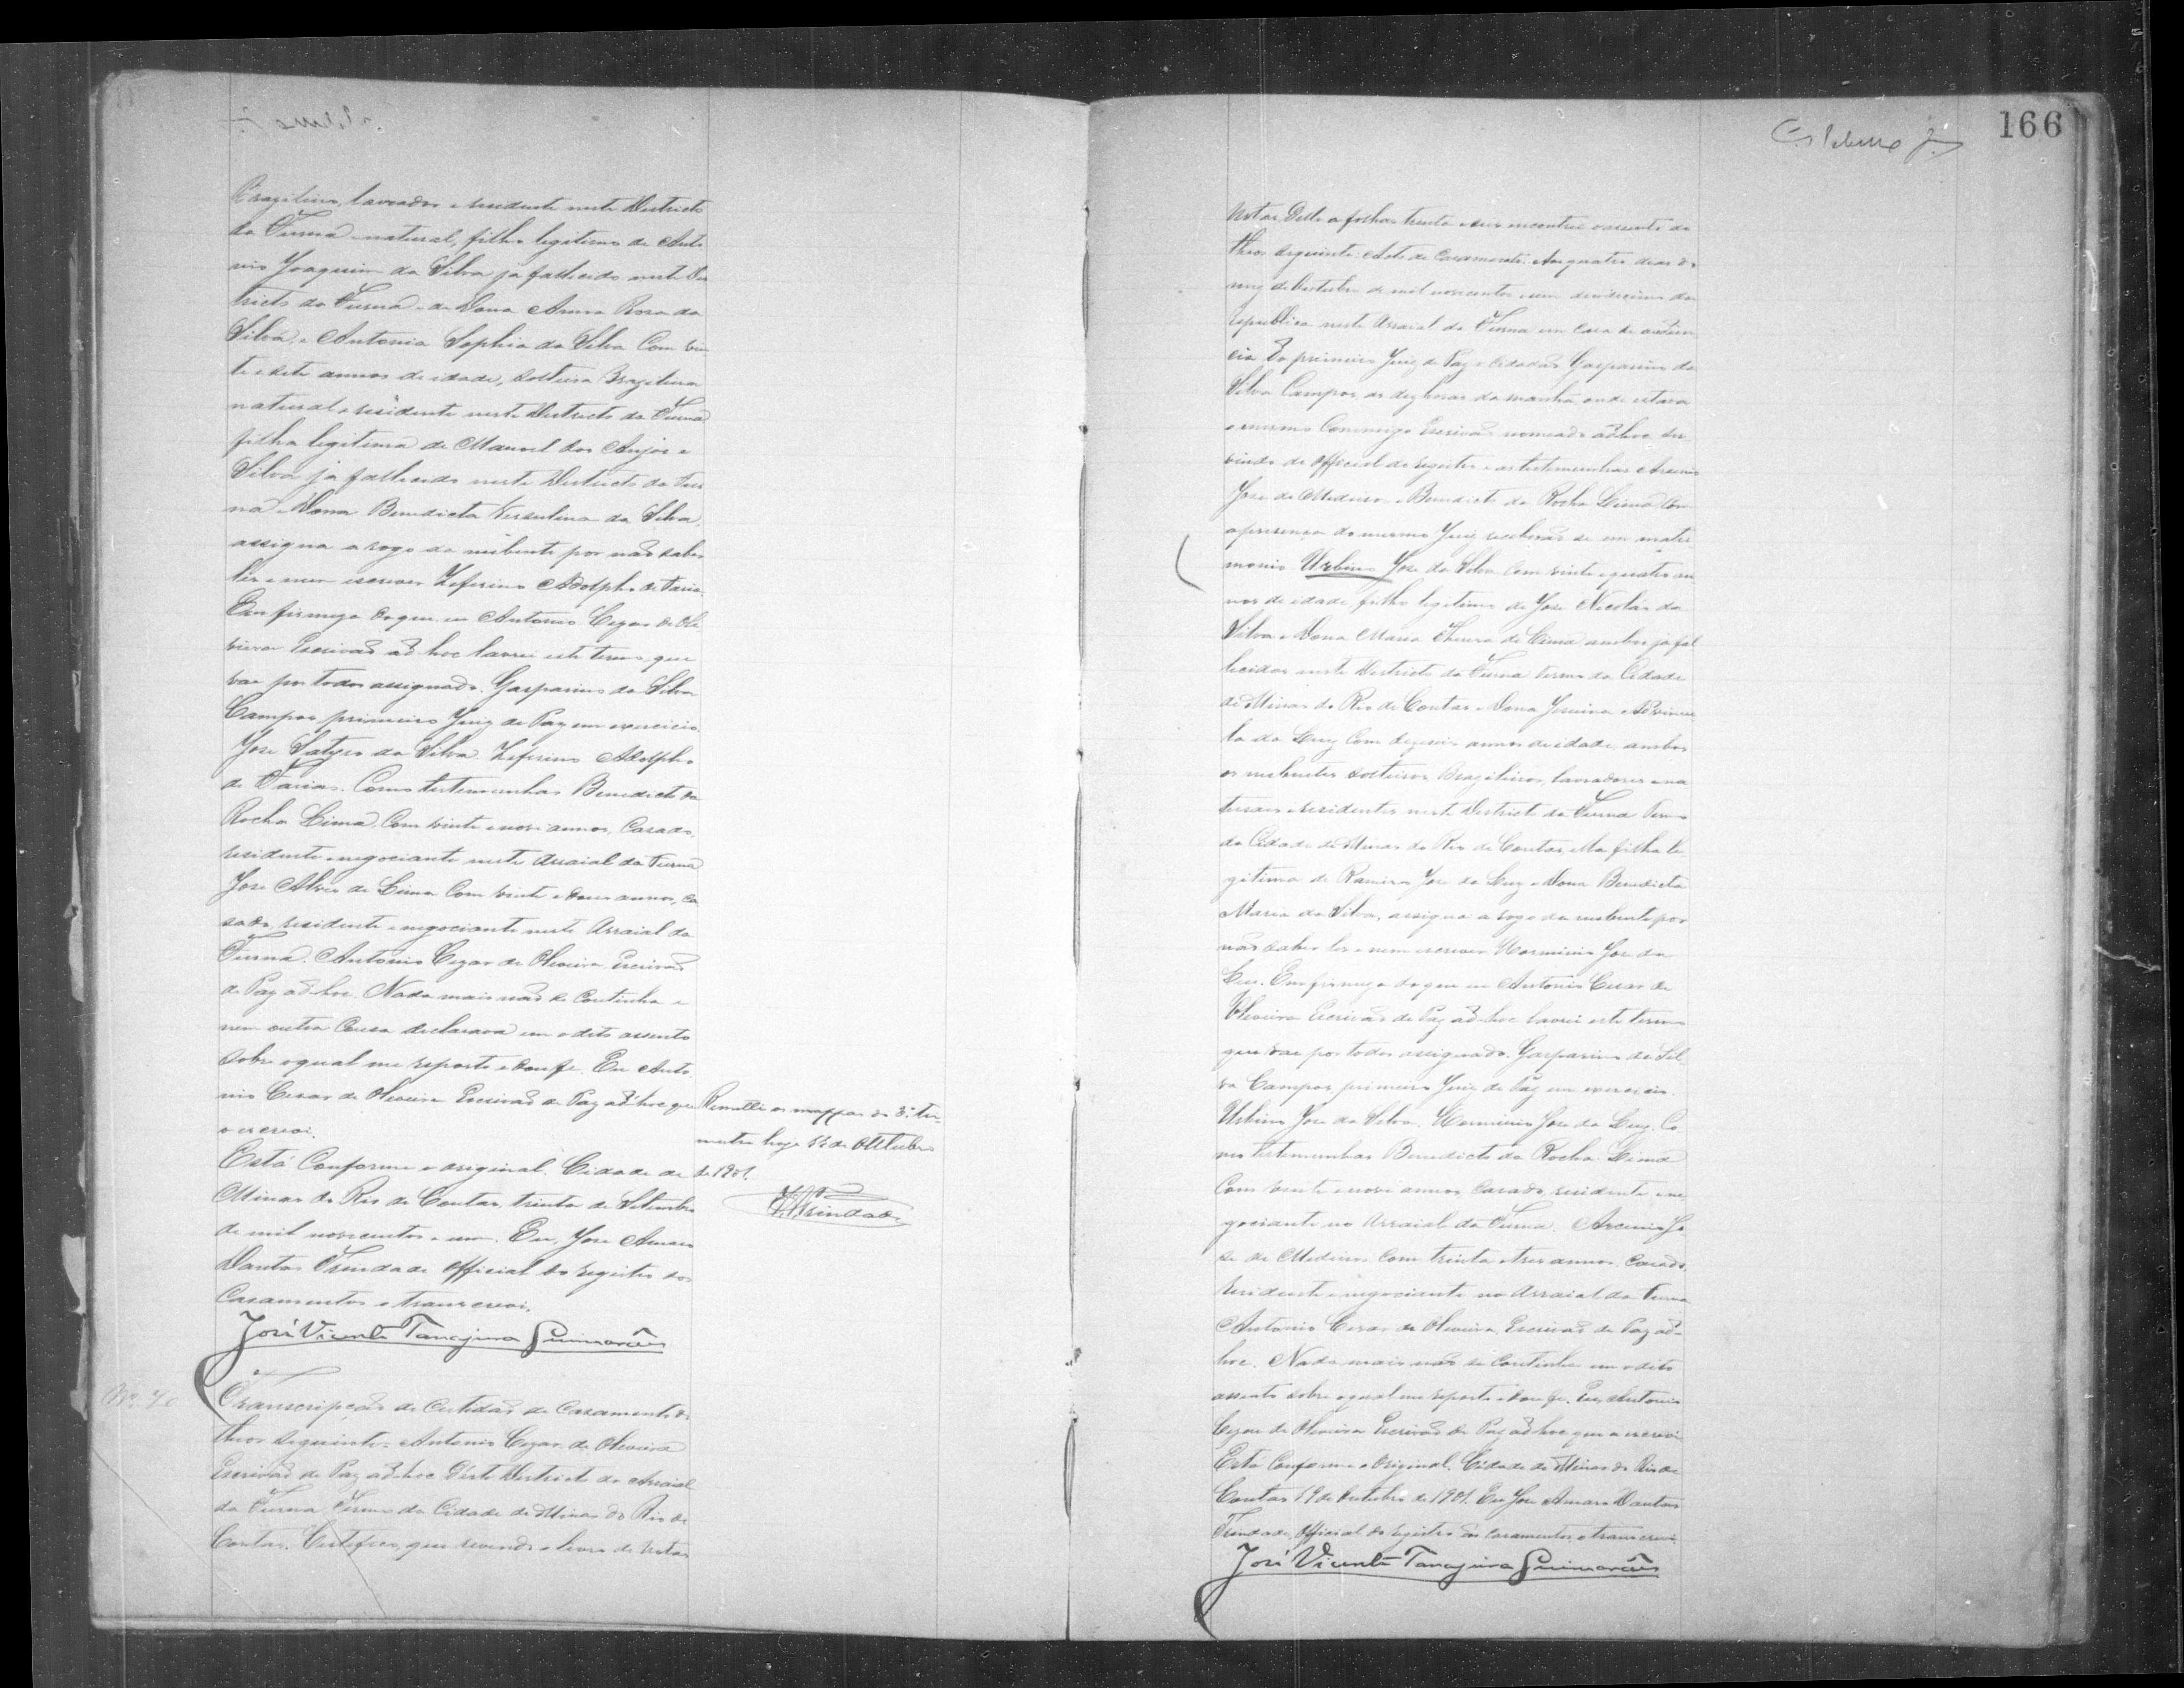 166
Brazileiro, lavrador e residente neste Districto
da Furna natural, filho legitimo de Anto
nio Joaquim da Silva ja fallecido neste Dis
tricto da Furna e de Dona Anna Rosa da
Silva, e Antonia Sophia da Silva Com vin
te e sete annos de idade, solteira Brazileira
natural e residente neste Districto da Furna
filha legitima de Manoel dos Anjos e
Silva ja fallecido neste Districto da Fur
na e Dona Benedicta da Silva,
assigna a rogo da nubente por não saber
ler e nem escrever Zeferino Adolpho de Farias
Em firmeza do que eu Antonio Cezar de Oli
veira Escrivão ad hoc lavrei este termo que
vae por todos assignado. Gasparino da Silva
Campos primeiro Juiz de Paz em exercicio
Jose da Silva. Zeferino Adolpho
de Farias. Como testemunhas Benedicto da
Rocha Lima, Com vinte e nove annos, Casado,
residente e negociante neste Arraial da Furna
Jose Alves de Lima Com vinte e dous annos, ca
sado, residente e negociante neste Arraial da
Furna. Antonio Cezar de Oliveira Escrivão
de Paz ad-hoc. Nada mais não se Continha e
nem outra Cousa declarava em o dito assento
sobre o qual me reporto e dou fé. Eu Anto
nio Cesar de Oliveira Escrivão de Paz ad-hoc que
o escrevi.
Remetti os mappas do 3º tri-
mestre hoje de Outubro
de 1901.
Trindade
Está Conforme o original. Cidade de
Minas do Rio de Contas, trinta de Setembro
de mil novecentos e um. Eu, Jose Amaro
Dantas Trindade Official do registro dos
Casamentos o transcrevi.
José Vicente Tanajura Guimarães
Nº 40
Transcripção da Certidão de Casamento do
theor seguinte. Antonio Cezar de Oliveira
Escrivão de Paz ad-hoc Déste Districto do Arraial
da Furna Termo da Cidade de Minas do Rio de
Contas. Certifico que revendo o livro de notas
notas Delle a folhas trinta e seis encontrei o assento do
theor seguinte: Acto de Casamento. Aos quatro dias do
mez de Outubro de mil novecentos e um da
republica neste Arraial da Furna em Casa de audien
cia do primeiro Juiz de Paz o Cidadão Gasparino da
Silva Campos, as dez horas da manhã onde estava
o mesmo Commigo Escrivão nomeado ad-hoc ser
vindo de Official do registro e as testemunhas Arsenio
Jose de Medeiros e Benedicto da Rocha Lima, Com
a presença do mesmo Juiz receberão se em matri
monio Urbino Jose da Silva Com vinte e quatro an
nos de idade filho legitimo de Jose Nicolau da
Silva e Dona Maria de Lima ambos ja fal
lecidos neste Districto da Furna termo da Cidade
de Minas do Rio de Contas e Dona
da Luz Com dezeseis annos de idade, ambos
os nubentes solteiros Brazileiros, lavradores e na
turaes e residentes neste Districto da Furna Termo
da Cidade de Minas do Rio de Contas, ella filha le
gitima de Ramiro Jose da Luz e Dona Benedicta
Maria da Silva, assigna a rogo da nubente por
não saber ler e nem escrever Herminio Jose da
Luz. Em firmeza do que eu Antonio Cesar de
Oliveira Escrivão de Paz ad-hoc lavrei este termo
que vae por todos assignado. Gasparino da Sil
va Campos primeiro Juiz de Paz em exercicio.
Urbino Jose da Silva. Herminio Jose da Luz. Co
mo testemunhas Benedicto da Rocha Lima
Com vinte e nove annos Casado, residente e ne
gociante no Arraial da Furna. Arsenio Jo
se de Medeiros Com trinta e tres annos, Casado,
residente e negociante no Arraial da Furna
Antonio Cesar de Oliveira, Escrivão de Paz ad-
hoc. Nada mais não se Continha em o dito
assento sobre o qual me reporto e dou fé. Eu, Antonio
Cezar de Oliveira Escrivão de Paz ad-hoc que o escrevi
Está Conforme o Original. Cidade de Minas do Rio de
Contas 19 de Outubro de 1901. Eu Jose Amaro Dantas
Trindade, Official do registro dos Casamentos, o transcrevi.
José Vicente Tanajura Guimarães